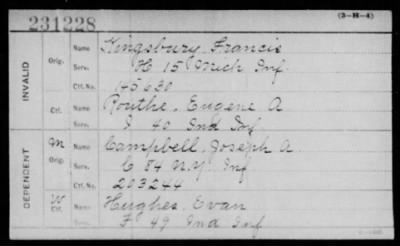 231228
(3-H-4)
INVALID
Orig.
Name Kingsbury, Francis
Serv. H 15 Mich Inf.
Ctf. No. 145630
Ctf.
Name Routhe, Eugene A
Serv. I 40 Ind Inf
DEPENDENT
M
Orig.
Name Campbell, Joseph A
Serv. C 84 N.Y. Inf
Ctf. No. 203244
W
Ctf.
Name Hughes, Evan
Serv. F 49 Ind Inf